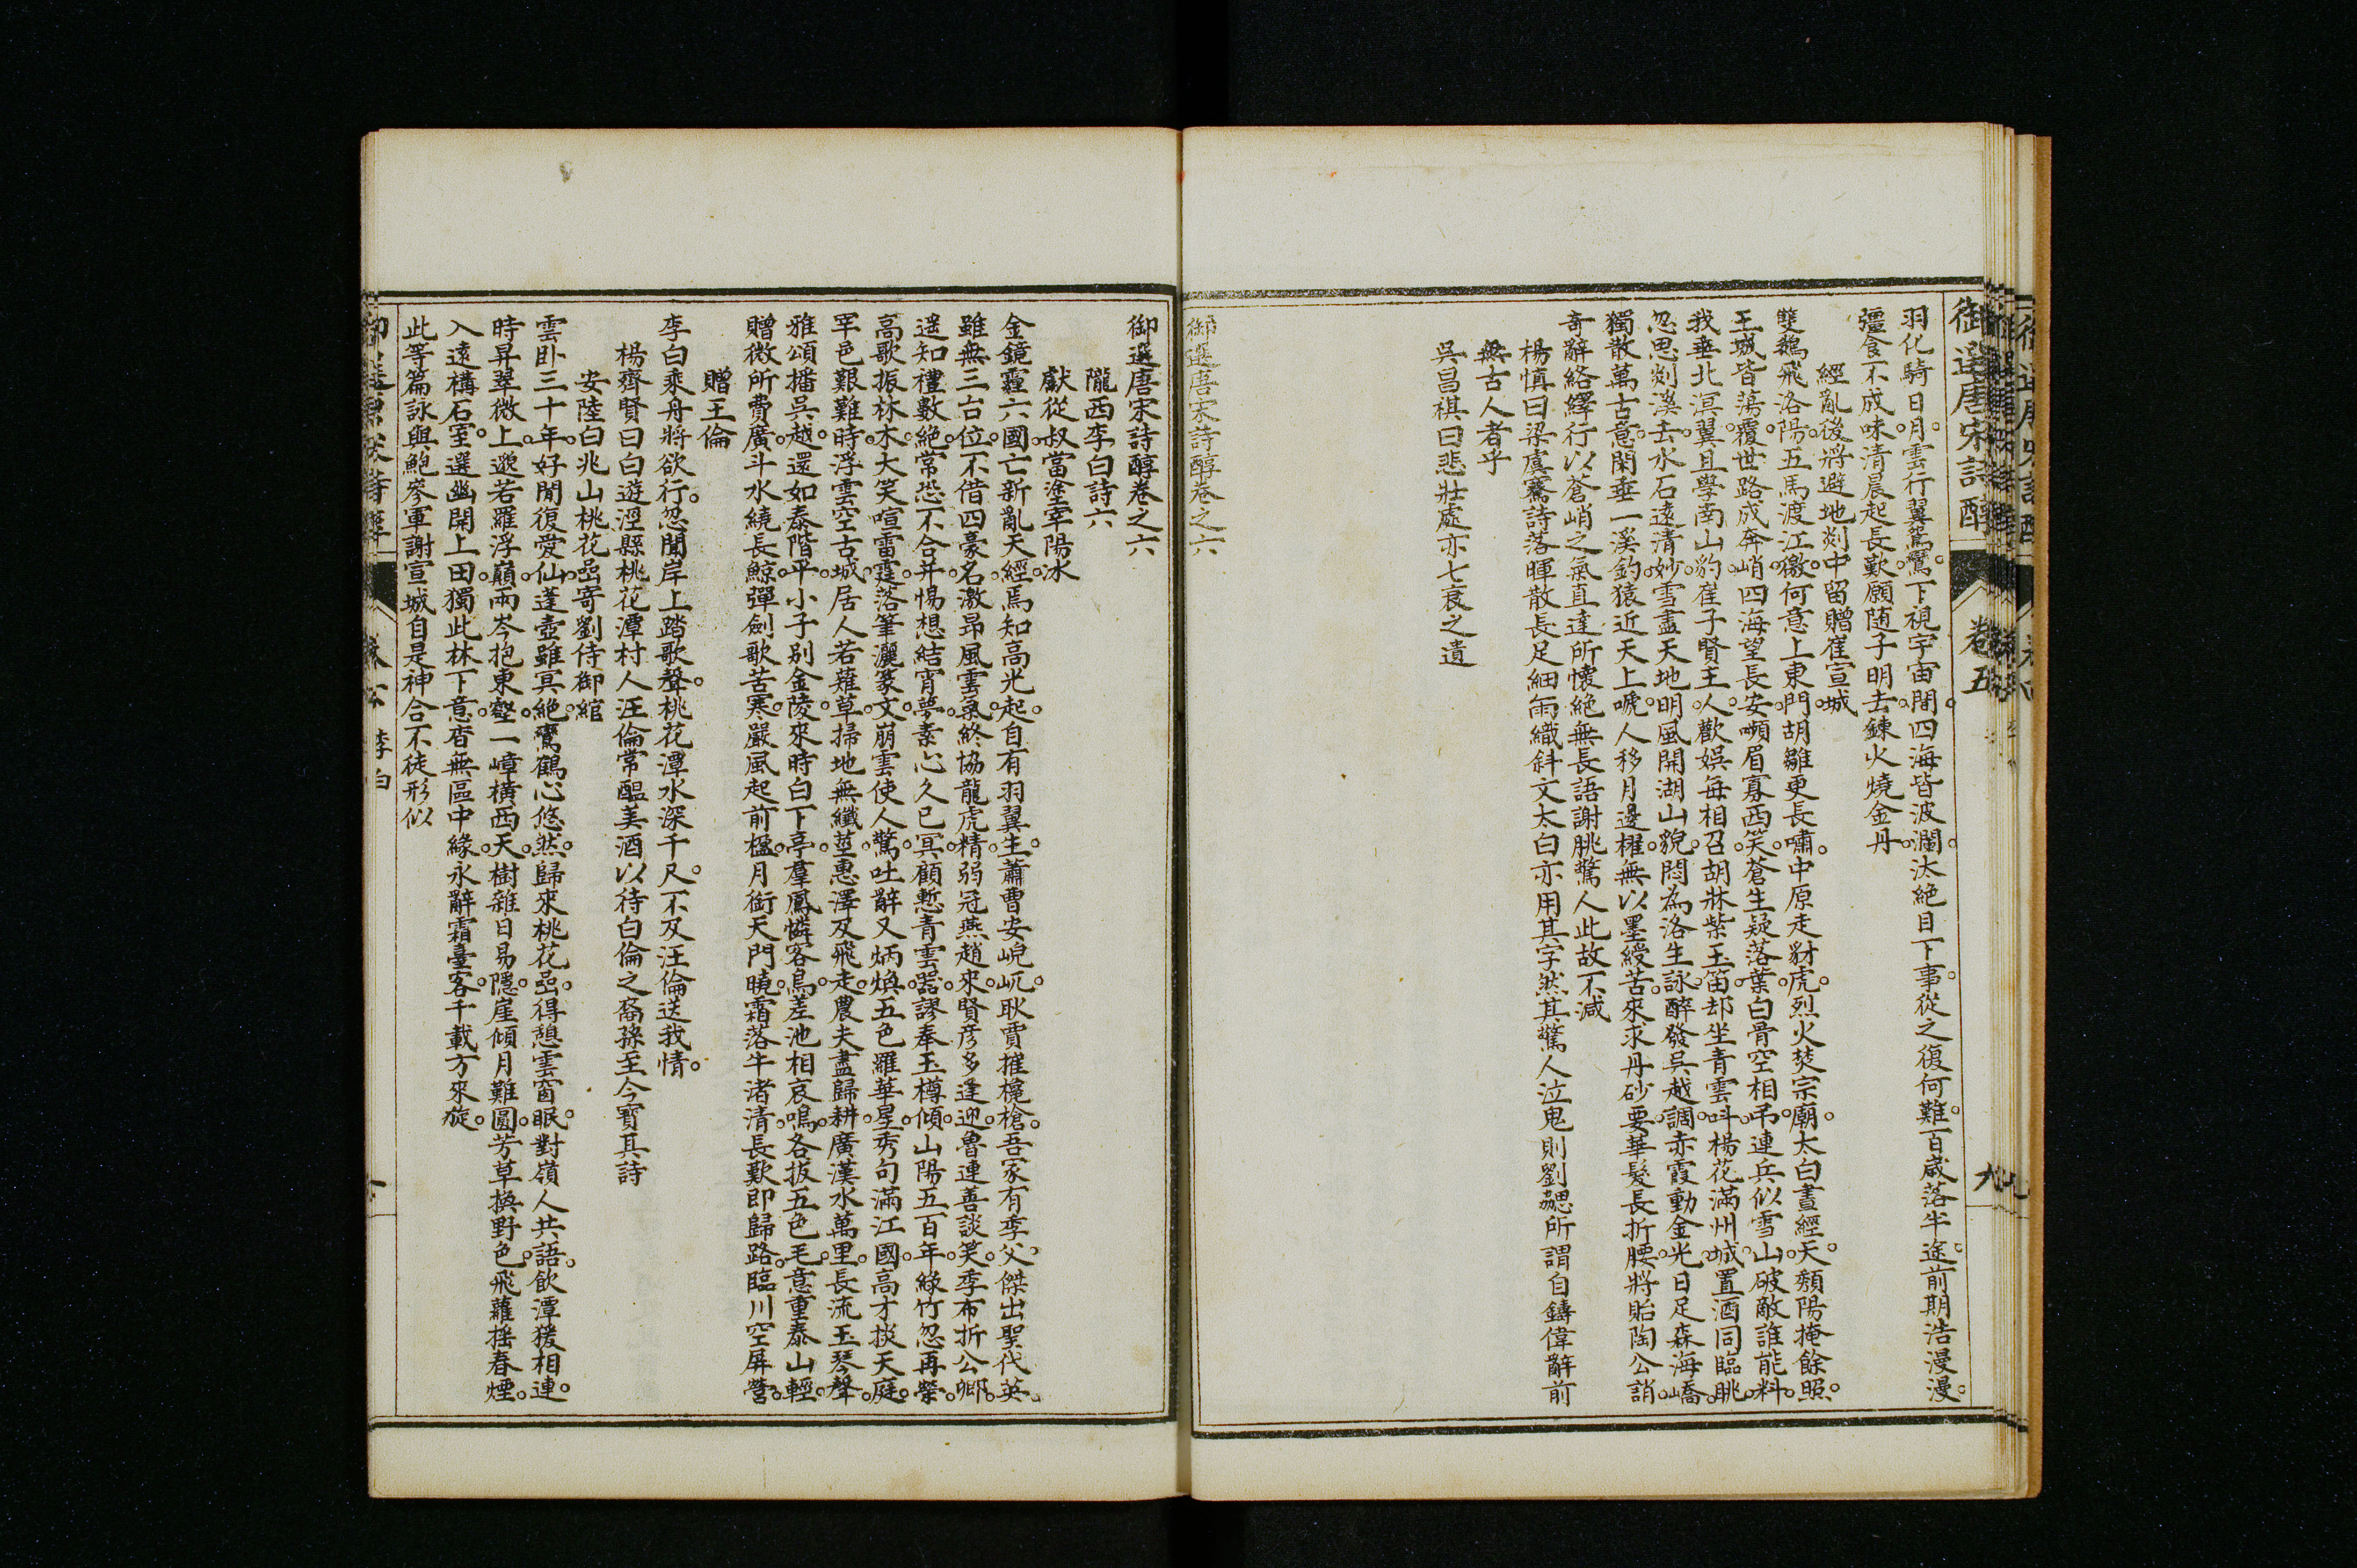 御選唐宋詩醇
卷五
九
羽化騎日月雲行翼鴛鸞下視宇宙間四海皆波瀾汰絕目下事從之復何難百歲落半途前期浩漫漫
彊食不成味清晨起長歎願隨子明去鍊火燒金丹
經亂後將避地剡中留贈崔宣城
雙鵝飛洛陽五馬渡江徼何意上東門胡雛更長嘯中原走豺虎烈火焚宗廟太白晝經天頹陽掩餘照
王城皆蕩覆世路成奔峭四海望長安嚬眉寡西笑蒼生疑落葉白骨空相弔連兵似雪山破敵誰能料
我垂北溟翼且學南山豹崔子賢主人歡娛每相召胡牀紫玉笛却坐青雲叫楊花滿州城置酒同臨眺
忽思剡溪去水石遠清妙雪盡天地明風開湖山貌悶為洛生詠醉發吳越調赤霞動金光日足森海嶠
獨散萬古意閑垂一溪釣猿近天上啼人移月邊櫂無以墨綬苦來求丹砂要華髮長折腰將貽陶公誚
奇辭絡繹行以蒼峭之氣直達所懷絕無長語謝朓驚人此故不減
楊慎曰梁虞騫詩落暉散長足細雨織斜文太白亦用其字然其驚人泣鬼則劉勰所謂自鑄偉辭前
無古人者乎
吳昌祺曰悲壯處亦七哀之遺
御選唐宋詩醇卷之六
御選唐宋詩醇卷之六
隴西李白詩六
獻從叔當塗宰陽冰
金鏡霾六國亡新亂天經焉知高光起自有羽翼生蕭曹安峴屼耿賈摧欃槍吾家有季父傑出聖代英
雖無三台位不借四豪名激昂風雲氣終協龍虎精弱冠燕趙來賢彥多逢迎魯連善談笑季布折公卿
遥知禮數絕常恐不合并惕想結宵夢素心久已冥顧慙青雲器謬奉玉樽傾山陽五百年綠竹忽再榮
高歌振林木大笑喧雷霆落筆灑篆文崩雲使人驚吐辭又炳煥五色羅華星秀句滿江國高才掞天庭
宰邑艱難時浮雲空古城居人若薙草掃地無纖莖惠澤及飛走農夫盡歸耕廣漢水萬里長流玉琴聲
雅頌播吳越還如泰階平小子别金陵來時白下亭羣鳳憐客鳥差池相哀鳴各拔五色毛意重泰山輕
贈微所費廣斗水繞長鯨彈劍歌苦寒嚴風起前楹月銜天門曉霜落牛渚清長歎即歸路臨川空屏營
贈王倫
李白乘舟將欲行忽聞岸上踏歌聲桃花潭水深千尺不及汪倫送我情
楊齊賢曰白遊涇縣桃花潭村人汪倫常醞美酒以待白倫之裔孫至今寶其詩
安陸白兆山桃花嵒寄劉侍御綰
雲卧三十年好閒復愛仙蓬壺雖冥絕鸞鶴心悠然歸來桃花嵒得憩雲窗眠對嶺人共語飲潭猨相連
時昇翠微上邈若羅浮巔兩岑抱東壑一嶂橫西天樹雜日易隱崖傾月難圓芳草換野色飛蘿搖春煙
入遠構石室選幽開上田獨此林下意杳無區中緣永辭霜臺客千載方來旋
此等篇詠與鮑參軍謝宣城自是神合不徒形似
李白